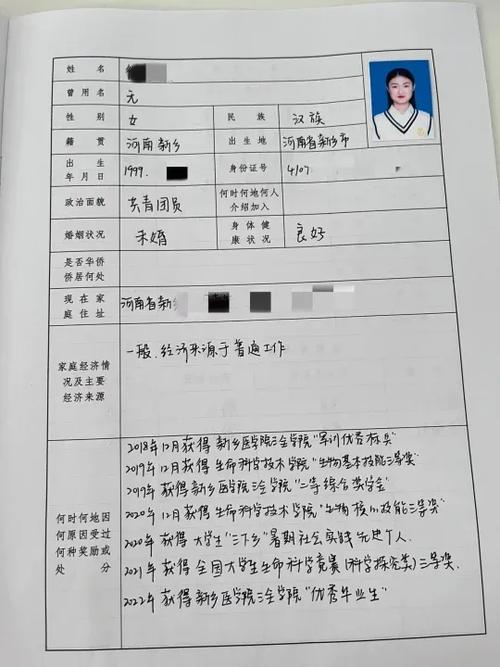 姓名
曾用名 无
性别 女 民族 汉族
籍贯 河南新乡 出生地 河南省新乡市
出生年月日 1999. 身份证号 4107
政治面貌 共青团员 何时何地何人介绍加入
婚姻状况 未婚 身体健康状况 良好
是否华侨侨居何处
现在家庭住址 河南省新乡
家庭经济情况及主要经济来源 一般、经济来源于普通工作
何时何地因何原因受过何种奖励或处分
2018年12月获得新乡医学院三全学院"军训优秀标兵"
2019年12月获得生命科学技术学院"生物基本技能三等奖"
2019年获得新乡医学院三全学院"二等综合奖学金"
2020年12月获得生命科学技术学院"生物核心技能三等奖"
2020年获得大学生"三下乡"暑期社会实践先进个人.
2021年获得全国大学生生命科学竞赛(科学探究类)三等奖.
2022年获得新乡医学院三全学院"优秀毕业生"